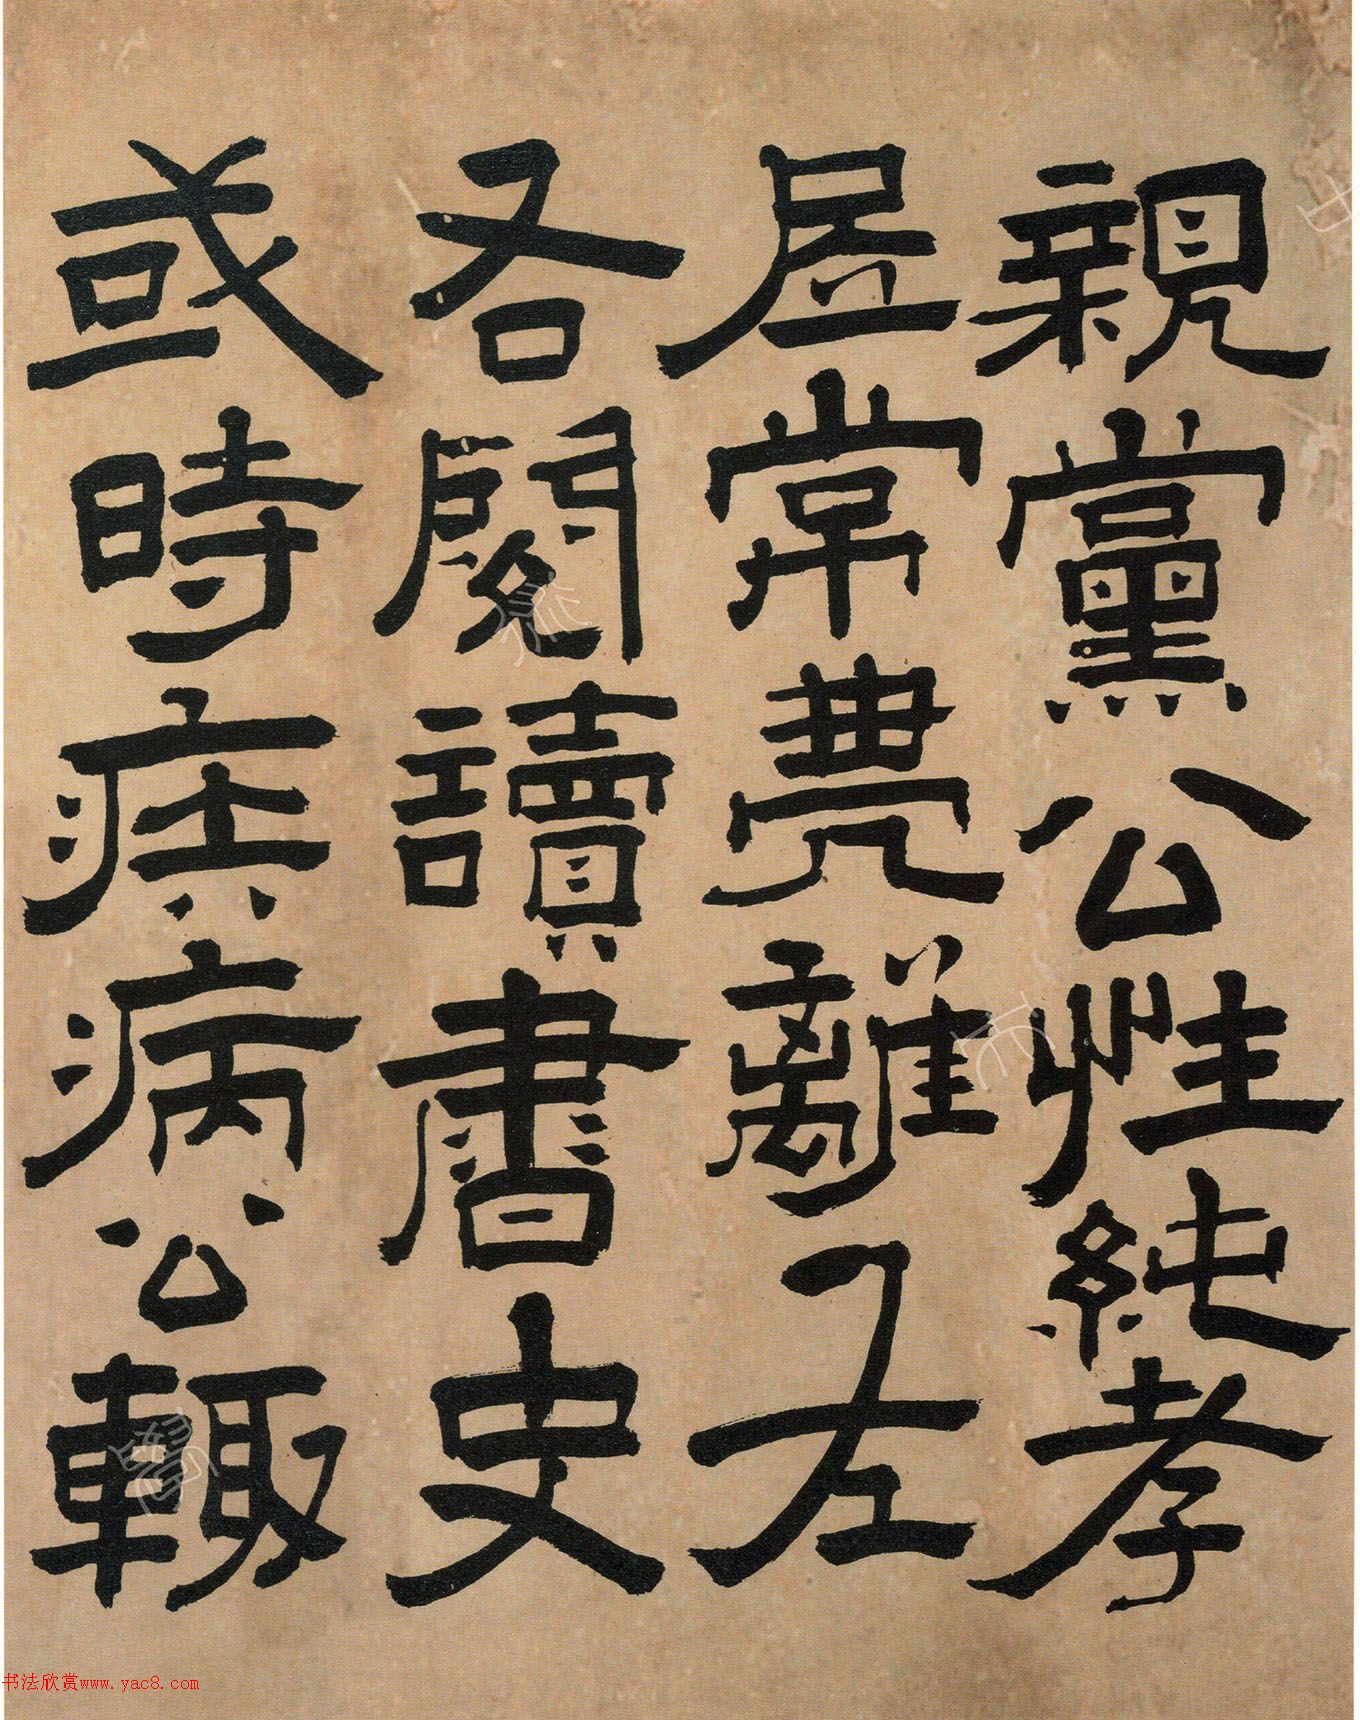 親黨公性純孝
居常莫離左
右閱讀書史
或時疾病公輒
书法欣赏www.yac8.com